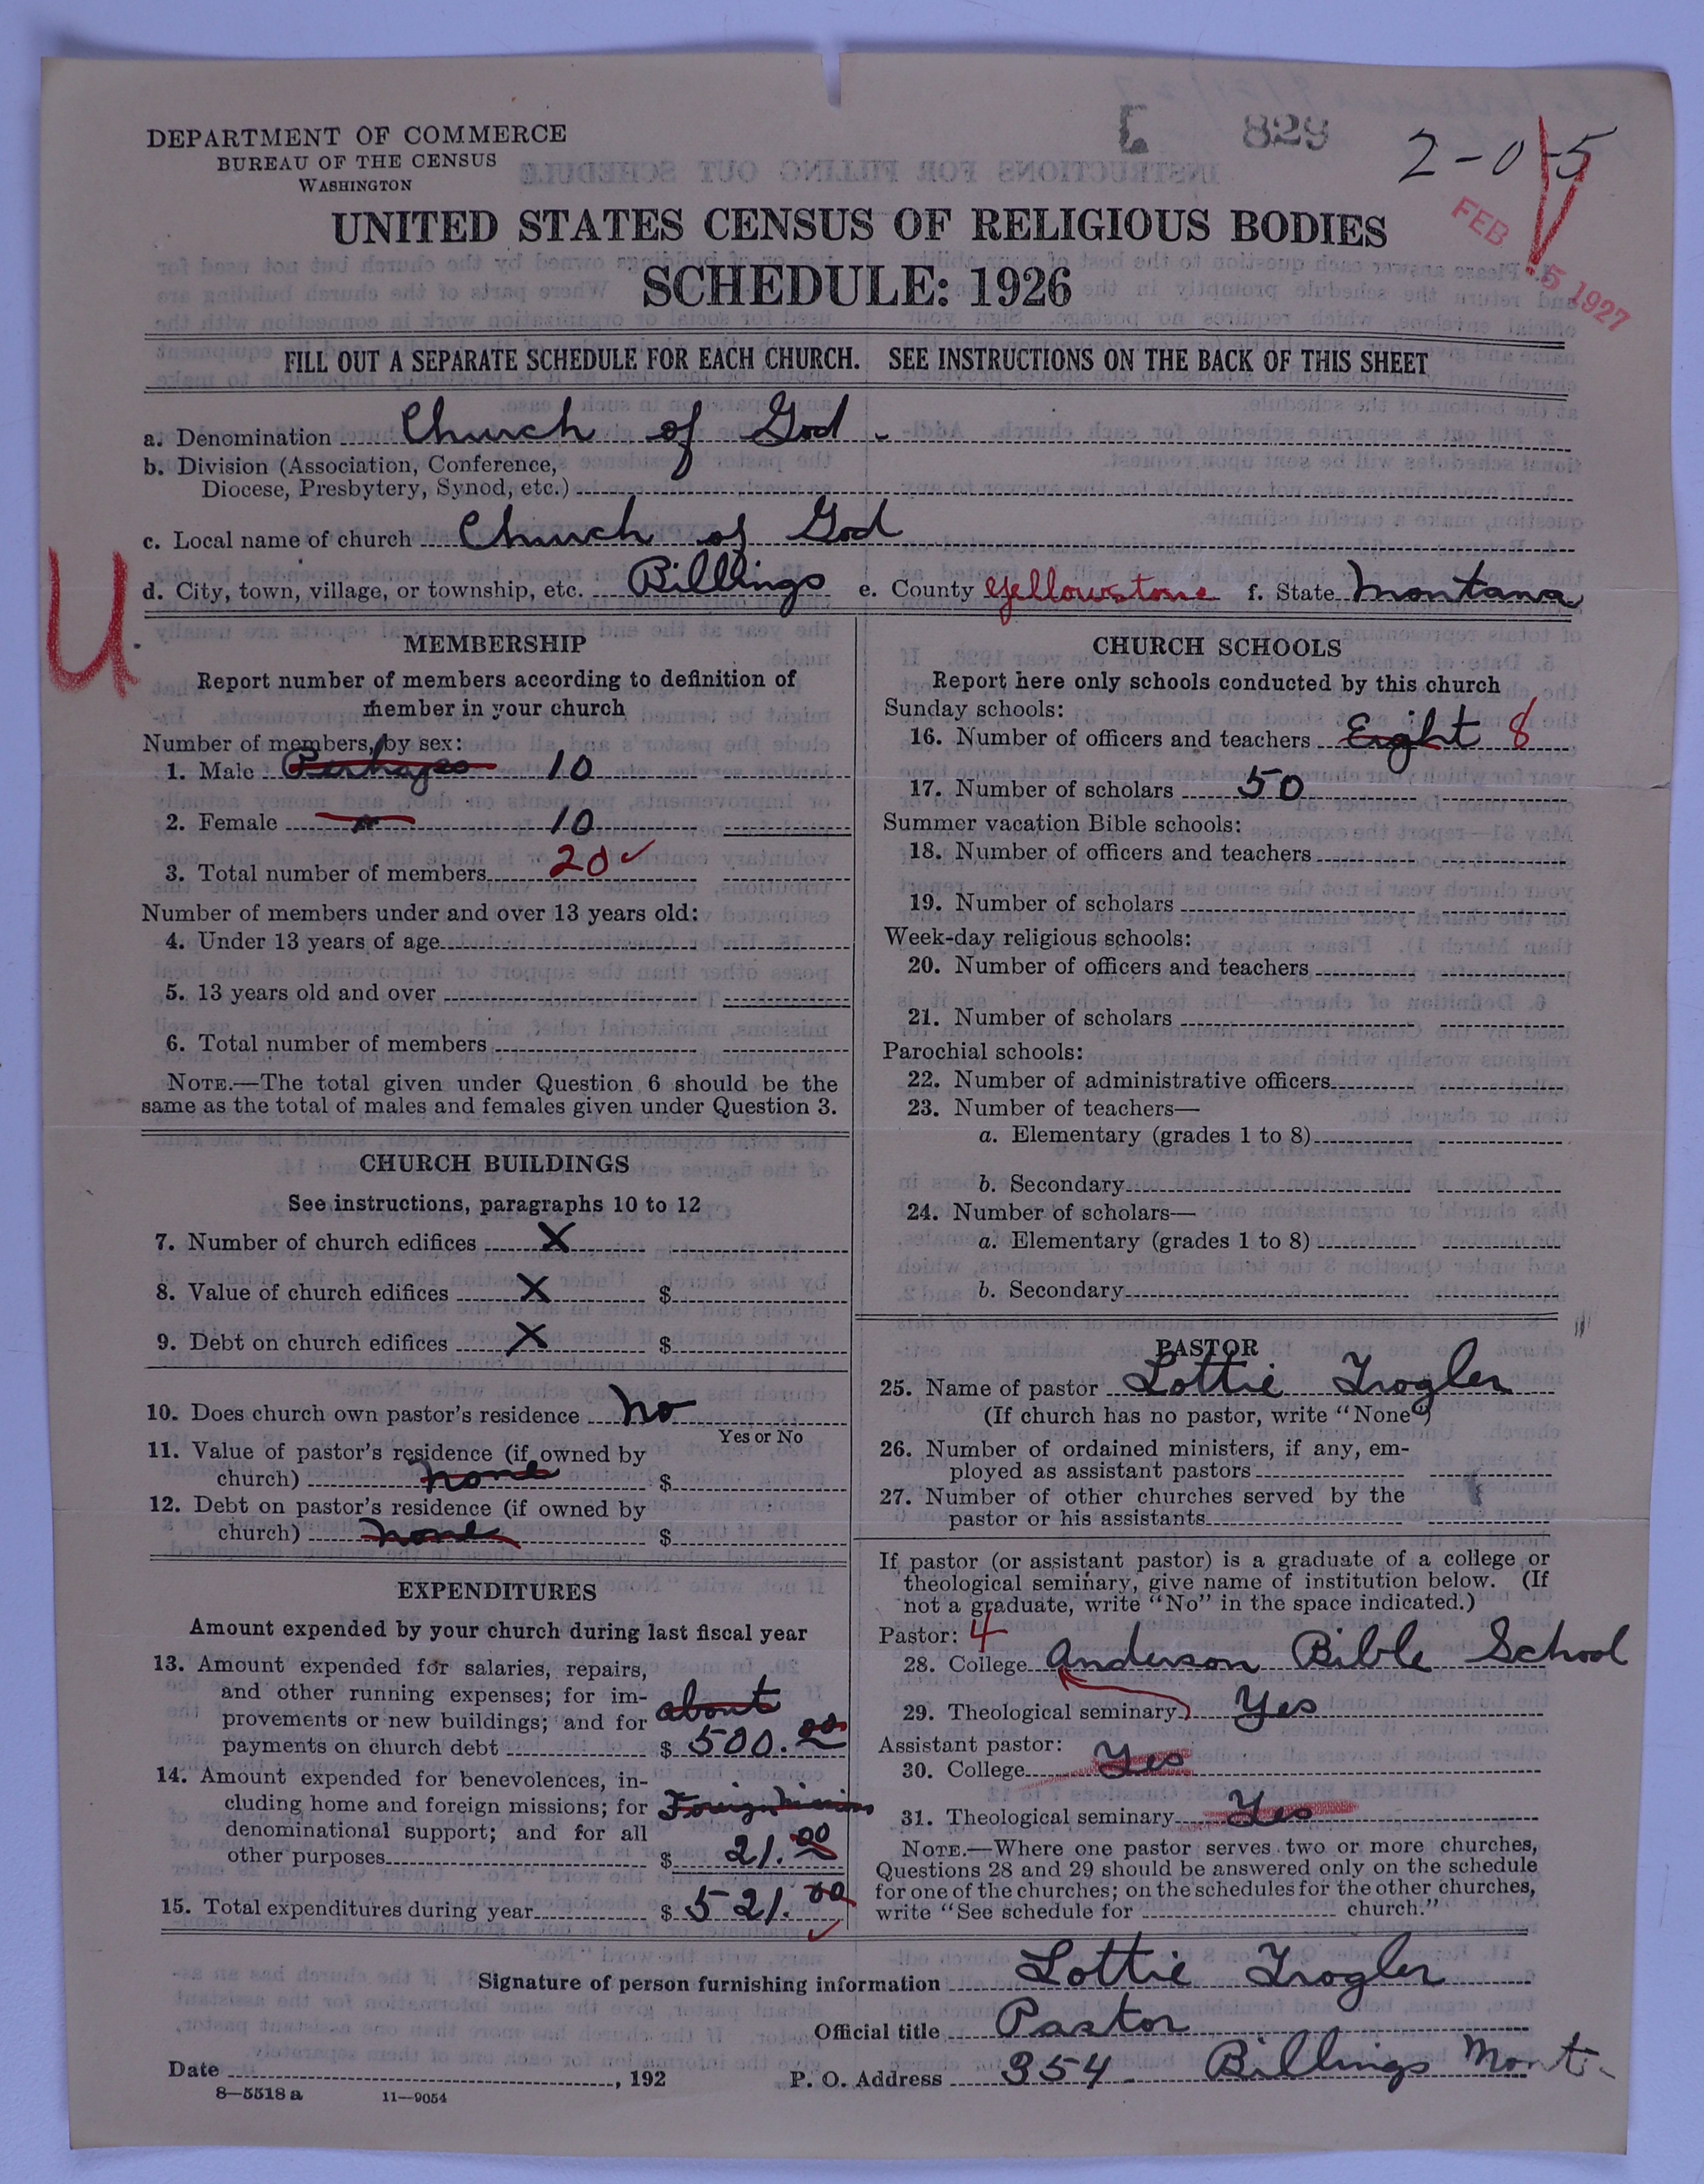 DEPARTMENT OF COMMERCE
BUREAU OF THE CENSUS
WASHINGTON
829
2-0-5
FEB 5 1927
UNITED STATES CENSUS OF RELIGIOUS BODIES
SCHEDULE: 1926
FILL OUT A SEPARATE SCHEDULE FOR EACH CHURCH. SEE INSTRUCTIONS ON THE BACK OF THIS SHEET
a. Denomination Church of God
b. Division (Association, Conference,
Diocese, Presbytery, Synod, etc.)
c. Local name of church Church of God
U
d. City, town, village, or township, etc. Billings e. County Yellowstone f. State Montana
MEMBERSHIP
Report number of members according to definition of
member in your church
Number of members, by sex:
1. Male Perhapes 10
2. Female " 10
3. Total number of members 20 ✓
Number of members under and over 13 years old:
4. Under 13 years of age
5. 13 years old and over
6. Total number of members
NOTE.—The total given under Question 6 should be the
same as the total of males and females given under Question 3.
CHURCH BUILDINGS
See instructions, paragraphs 10 to 12
7. Number of church edifices X
8. Value of church edifices X $
9. Debt on church edifices X $
10. Does church own pastor's residence No
Yes or No
11. Value of pastor's residence (if owned by
church) none $
12. Debt on pastor's residence (if owned by
church) none $
EXPENDITURES
Amount expended by your church during last fiscal year
13. Amount expended for salaries, repairs,
and other running expenses; for im-
provements or new buildings; and for about
payments on church debt $ 500.00
14. Amount expended for benevolences, in-
cluding home and foreign missions; for Foreign Missions
denominational support; and for all
other purposes $ 21.00
15. Total expenditures during year $ 521.00
✓
CHURCH SCHOOLS
Report here only schools conducted by this church
Sunday schools:
16. Number of officers and teachers Eight 8
17. Number of scholars 50
Summer vacation Bible schools:
18. Number of officers and teachers
19. Number of scholars
Week-day religious schools:
20. Number of officers and teachers
21. Number of scholars
Parochial schools:
22. Number of administrative officers
23. Number of teachers—
a. Elementary (grades 1 to 8)
b. Secondary
24. Number of scholars—
a. Elementary (grades 1 to 8)
b. Secondary
PASTOR
25. Name of pastor Lottie Trogler
(If church has no pastor, write "None")
26. Number of ordained ministers, if any, em-
ployed as assistant pastors
27. Number of other churches served by the
pastor or his assistants
If pastor (or assistant pastor) is a graduate of a college or
theological seminary, give name of institution below. (If
not a graduate, write "No" in the space indicated.)
Pastor: 4
28. College Anderson Bible School
29. Theological seminary Yes
Assistant pastor:
30. College Yes
31. Theological seminary Yes
NOTE.—Where one pastor serves two or more churches,
Questions 28 and 29 should be answered only on the schedule
for one of the churches; on the schedules for the other churches,
write "See schedule for church."
Signature of person furnishing information Lottie Trogler
Official title Pastor
Date , 192 P. O. Address 354 Billings Mont.
8—5518 a 11—9054